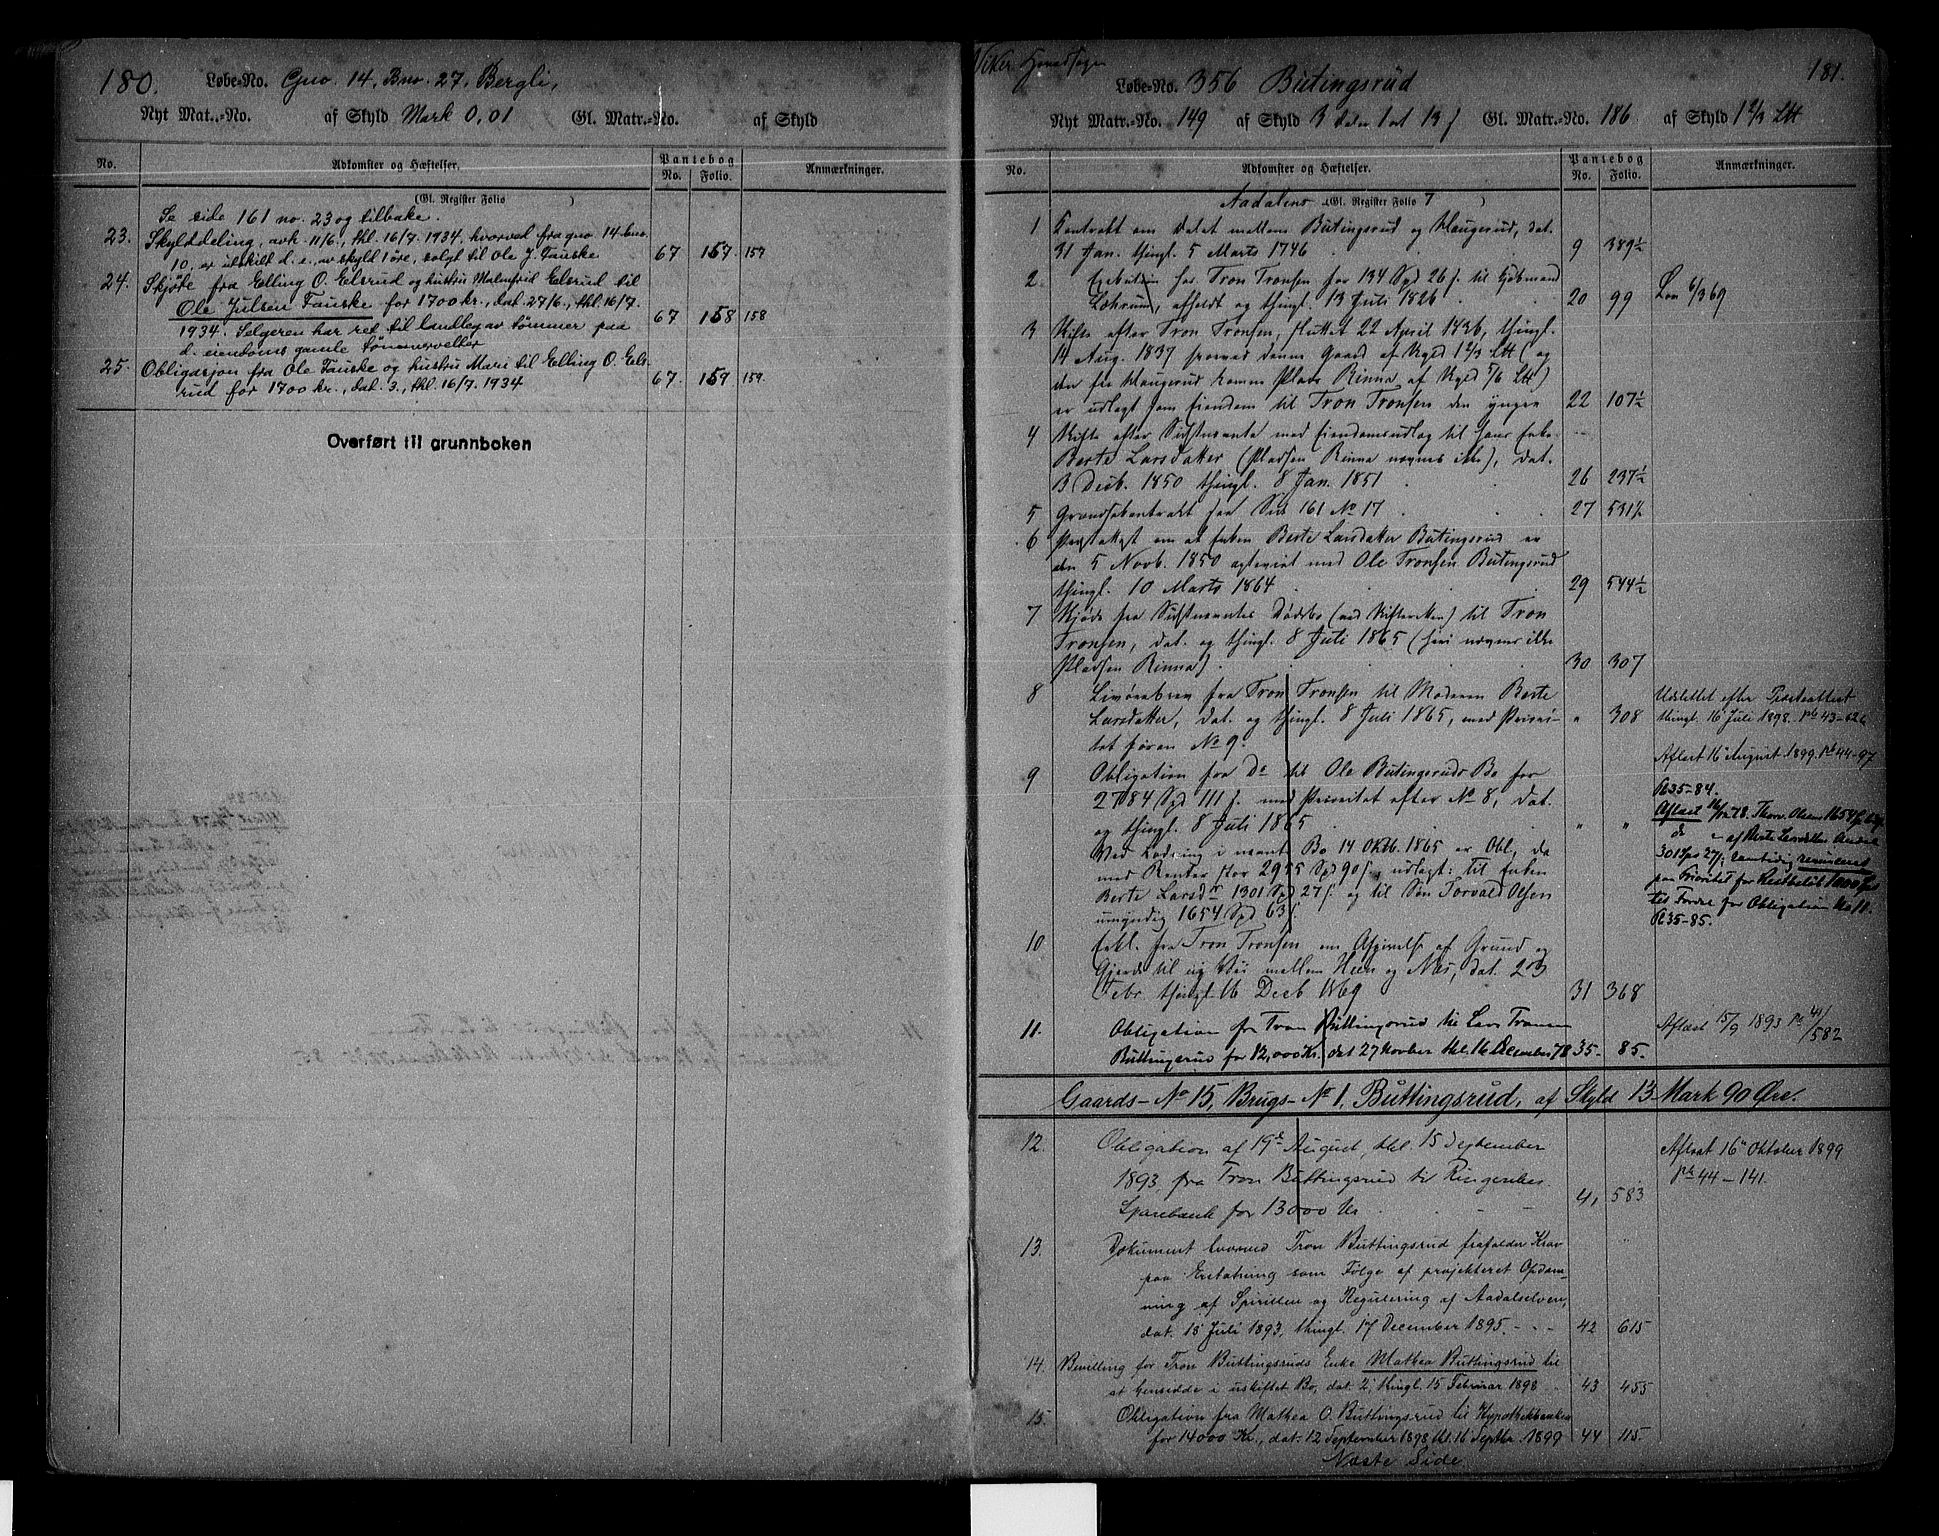 180. Løbe-No. Gno. 14. Bno. 27. Bergli,
Nyt Mat.-No. af Skyld Mark 0,01 Gl. Matr.-No. af Skyld
No. Adkomster og Hæftelser. Pantebog No. Folio. Anmærkninger.
(Gl. Register Folio )
Se side 161 no. 23 og tilbake.
23. Skylddeling, avh. 11/6., thl. 16/7. 1934, hvorved fra gno. 14 bno.
10, er utskilt d. e. av skyld 1 øre, solgt til Ole J. Fauske 67 157 159
24. Skjøte fra Elling O. Elsrud og hustru Malmfrid Elsrud til
Ole Julsen Fauske for 1700 kr., dat. 27/6., thl. 16/7.
1934. Selgeren har ret til landleg av tømmer paa 67 158 158
d. eiendoms gamle tømmervelter
25. Obligasjon fra Ole Fauske og hustru Mari til Elling O. Els-
rud for 1700 kr., dat. 3., thl. 16/7. 1934 67. 159 159.
Overført til grunnboken
Viker 181.
Løbe-No. 356 Butingsrud
Nyt Matr.-No. 149 af Skyld 3 Daler 1 ort 13 ſ Gl. Matr.-No. 186 af Skyld 1 2/3 Ltt
No. Adkomster og Hæftelser. Pantebog No. Folio. Anmærkninger.
Aadalens (Gl. Register Folio 7 )
1 Kontrakt om Delet mellem Butingsrud og Haugerud, dat.
31 Jan. thingl. 5 Marts 1746 9 389½
2. Execution hos Tron Tronsen for 134 Spd 26 ſ. til Kjøbmand
afholdt og thingl. 13 Juli 1826 20 99
3 Skifte efter Tron Tronsen, sluttet 22 April 1836, thingl.
14 Aug. 1837 hvorved denne Gaard af Skyld 1 2/3 Ltt (og
den fra Haugerud komne Plads Rinna af Skyld 5/6 Ltt)
er udlagt som Eiendom til Tron Tronsen den yngre 22 107½
4 Skifte efter Sidstnævnte med Eiendomsudlæg til hans Enke
Berte Larsdatter (Pladsen Rinna nævnes ikke), dat.
3 Decb. 1850 thingl. 8 Jan. 1851 26 237½
5 Grændsekontrakt see Side 161 No 17 27 531½
6 Pagtakst om at Enken Berte Larsdatter Butingsrud er
den 5 Novb. 1850 egteviet med Ole Tronsen Butingsrud
thingl. 10 Marts 1864 29 544½
7 Skjøde fra Sidstnævntes Dødsbo (ved Skifteretten) til Tron
Tronsen, dat. og thingl. 8 Juli 1865 (heri nævnes ikke
Pladsen Rinna). 30 307
8 Livørebrev fra Tron Tronsen til Moderen Berte Udslettet efter Præsteattest
Larsdatter, dat. og thingl. 8 Juli 1865, med Priori- " 308 thingl. 16 Juli 1898. Pb 43-626
tet foran No 9.
Aflæst 16 August 1899. Pb 44-97
9 Obligation fra Do til Ole Butingsruds Bo for
2784 Spd 111 ſ. med Prioritet efter No 8, dat. A35-84.
og thingl. 8 Juli 1865 " " Aflæst 16/12 78. Thorv. Olsens 1654 63
Ved Lodning i nævnte Bo 14 Oktb. 1865 er Obl., da do - af Berte Larsdatters Andel
med Renter stor 2955 Spd 90 ſ, udlagt: til Enken 301 27 samtidig renunceret
Berte Larsdr 1301 Spd 27 ſ. og til Søn Torvald Olsen paa Prioritet for Restbeløb 1000
umyndig 1654 Spd 63 ſ. til Fordel for Obligation No 11.
A35-85.
10 Erkl. fra Tron Tronsen om Afgivelse af Grund og
Gjerde til ny Vei mellem Heen og Næs, dat. 23
Febr. thingl. 16 Decb 1869 31 368
11. Obligation fra Tron Buttingsrud til Lars Tronsen Aflæst 15/9 1893 Pb 41/582
Buttingsrud for 12,000 Kr. dat 27 Novber thl. 16 December 78 35- 85.
Gaards-No 15, Brugs-No 1, Buttingsrud, af Skyld 13 Mark 90 Øre.
12. Obligation af 19de August, thl 15 September Aflæst 16 Oktober 1899
1893, fra Tron Buttingsrud til Ringerikes Pb 44-141.
Sparebank for 13000 Kr 41 583
13. Dokument hvorved Tron Buttingsrud frafalder Krav
paa Erstatning som Følge af projekteret Opdæm-
ning af Spirillen og Regulering af Aadalselven,
dat. 15 Juli 1893, thingl. 17 December 1895. 42 615
14. Bevilling for Tron Buttingsruds Enke Mathea Buttingsrud til
at hensidde i uskiftet Bo, dat. 2, thingl. 15 Februar 1898 43 455
15. Obligation fra Mathea O. Buttingsrud til Hypothekbanken
for 14000 Kr., dat. 12 September 1898 thl. 16 Septbr. 1899 44 115.
Næste Side